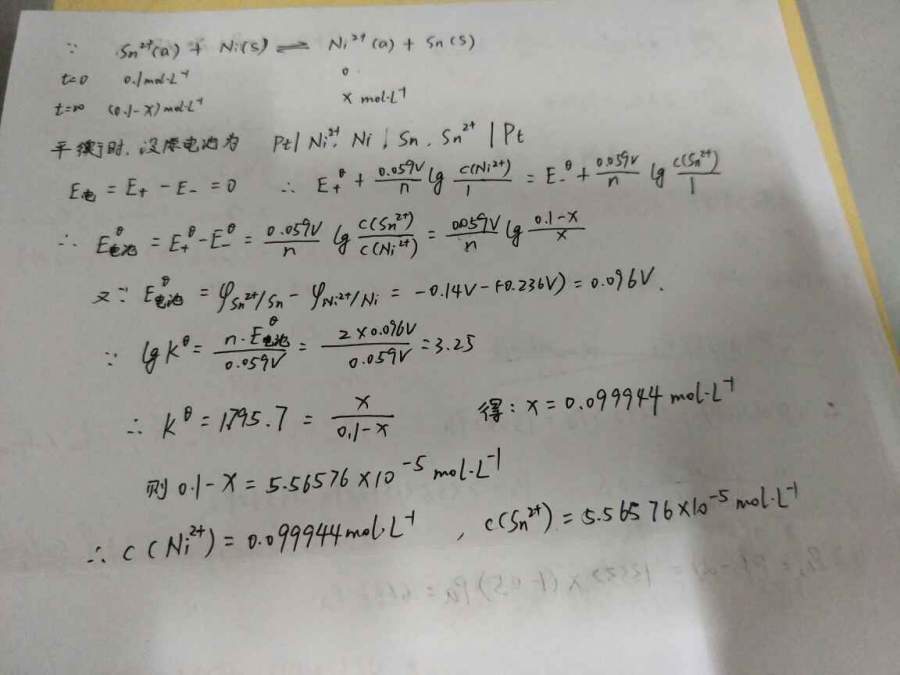 ∵ Sn²⁺(a) + Ni(s) ⇌ Ni²⁺(a) + Sn(s)
t=0 0.1mol·L⁻¹ 0
t=∞ (0.1-x)mol·L⁻¹ x mol·L⁻¹
平衡时, 设原电池为 Pt | Ni²⁺, Ni ¦ Sn, Sn²⁺ | Pt
E电 = E₊ - E₋ = 0 ∴ E₊^θ + 0.059V/n lg c(Ni²⁺)/1 = E₋^θ + 0.059V/n lg c(Sn²⁺)/1
∴ E^θ电池 = E₊^θ - E₋^θ = 0.059V/n lg c(Sn²⁺)/c(Ni²⁺) = 0.059V/n lg 0.1-x/x
又∵ E^θ电池 = φSn²⁺/Sn - φNi²⁺/Ni = -0.14V-(-0.236V) = 0.096V.
∵ lg K^θ = n·E^θ电池/0.059V = 2×0.096V/0.059V = 3.25
∴ K^θ = 1795.7 = x/0.1-x 得: x = 0.099944 mol·L⁻¹
则 0.1-x = 5.56576×10⁻⁵ mol·L⁻¹
∴ c(Ni²⁺) = 0.099944mol·L⁻¹, c(Sn²⁺) = 5.56576×10⁻⁵ mol·L⁻¹